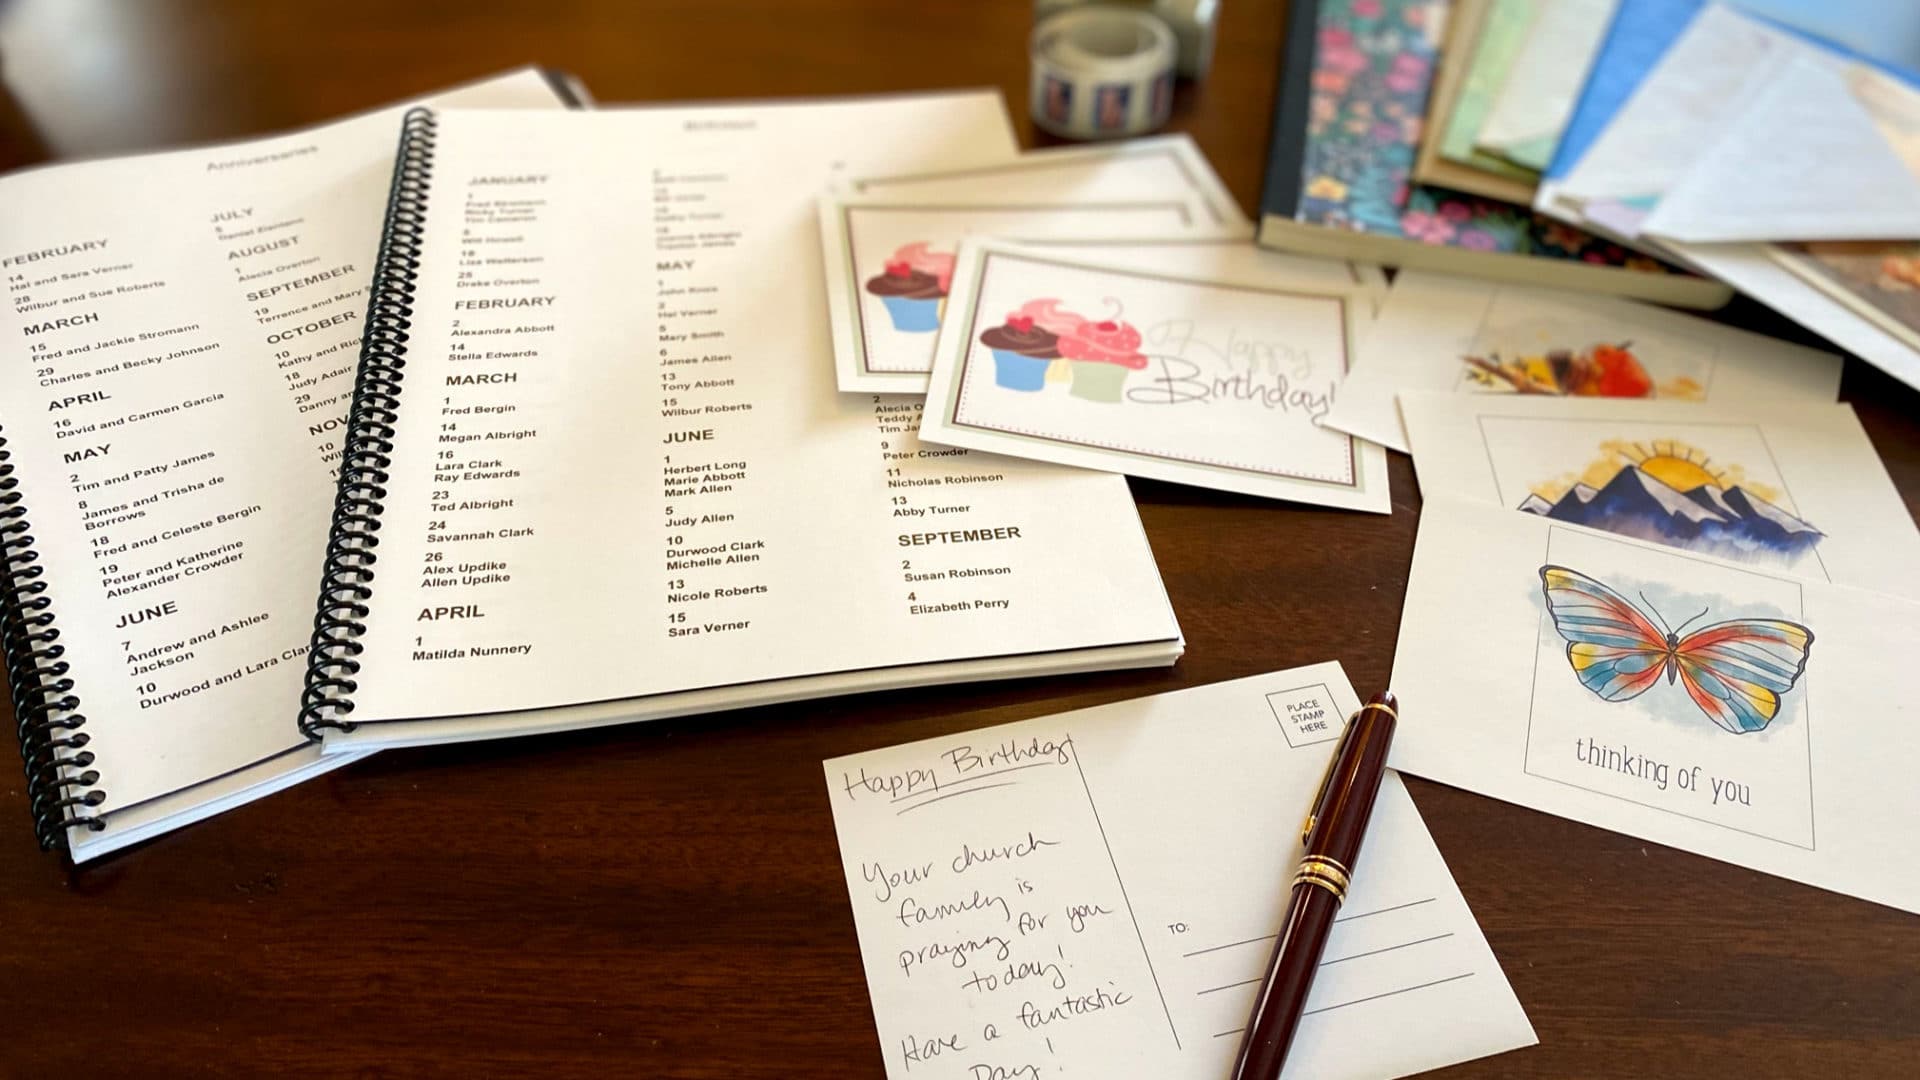 Anniversaries
FEBRUARY
14
Hal and Sara Verner
28
Wilbur and Sue Roberts
MARCH
15
Fred and Jackie Stromann
29
Charles and Becky Johnson
APRIL
16
David and Carmen Garcia
MAY
2
Tim and Patty James
8
James and Trisha de
Borrows
18
Fred and Celeste Bergin
19
Peter and Katherine
Alexander Crowder
JUNE
7
Andrew and Ashlee
Jackson
10
Durwood and Lara Clar
JULY
AUGUST
1
Alecia Overton
SEPTEMBER
19
Terrence and Mary
OCTOBER
10
Kathy and Ric
18
Judy Adair
29
Danny an
NOV
10
Birthdays
JANUARY
1
Fred Stromann
Ricky Turner
Tim Cameron
8
Will Howell
18
25
Drake Overton
FEBRUARY
2
Alexandra Abbott
14
Stella Edwards
MARCH
1
Fred Bergin
14
Megan Albright
16
Lara Clark
Ray Edwards
23
Ted Albright
24
Savannah Clark
26
Alex Updike
Allen Updike
APRIL
1
Matilda Nunnery
MAY
1
John Knox
Hal Verner
5
Mary Smith
6
James Allen
13
Tony Abbott
15
Wilbur Roberts
JUNE
1
Herbert Long
Marie Abbott
Mark Allen
5
Judy Allen
10
Durwood Clark
Michelle Allen
13
Nicole Roberts
15
Sara Verner
2
Alecia O
Teddy A
Tim Ja
9
Peter Crowder
11
Nicholas Robinson
13
Abby Turner
SEPTEMBER
2
Susan Robinson
4
Elizabeth Perry
Happy
Birthday!
thinking of you
PLACE
STAMP
HERE
Happy Birthday
Your church
family is
praying for you
today!
Have a fantastic
Day!
TO: